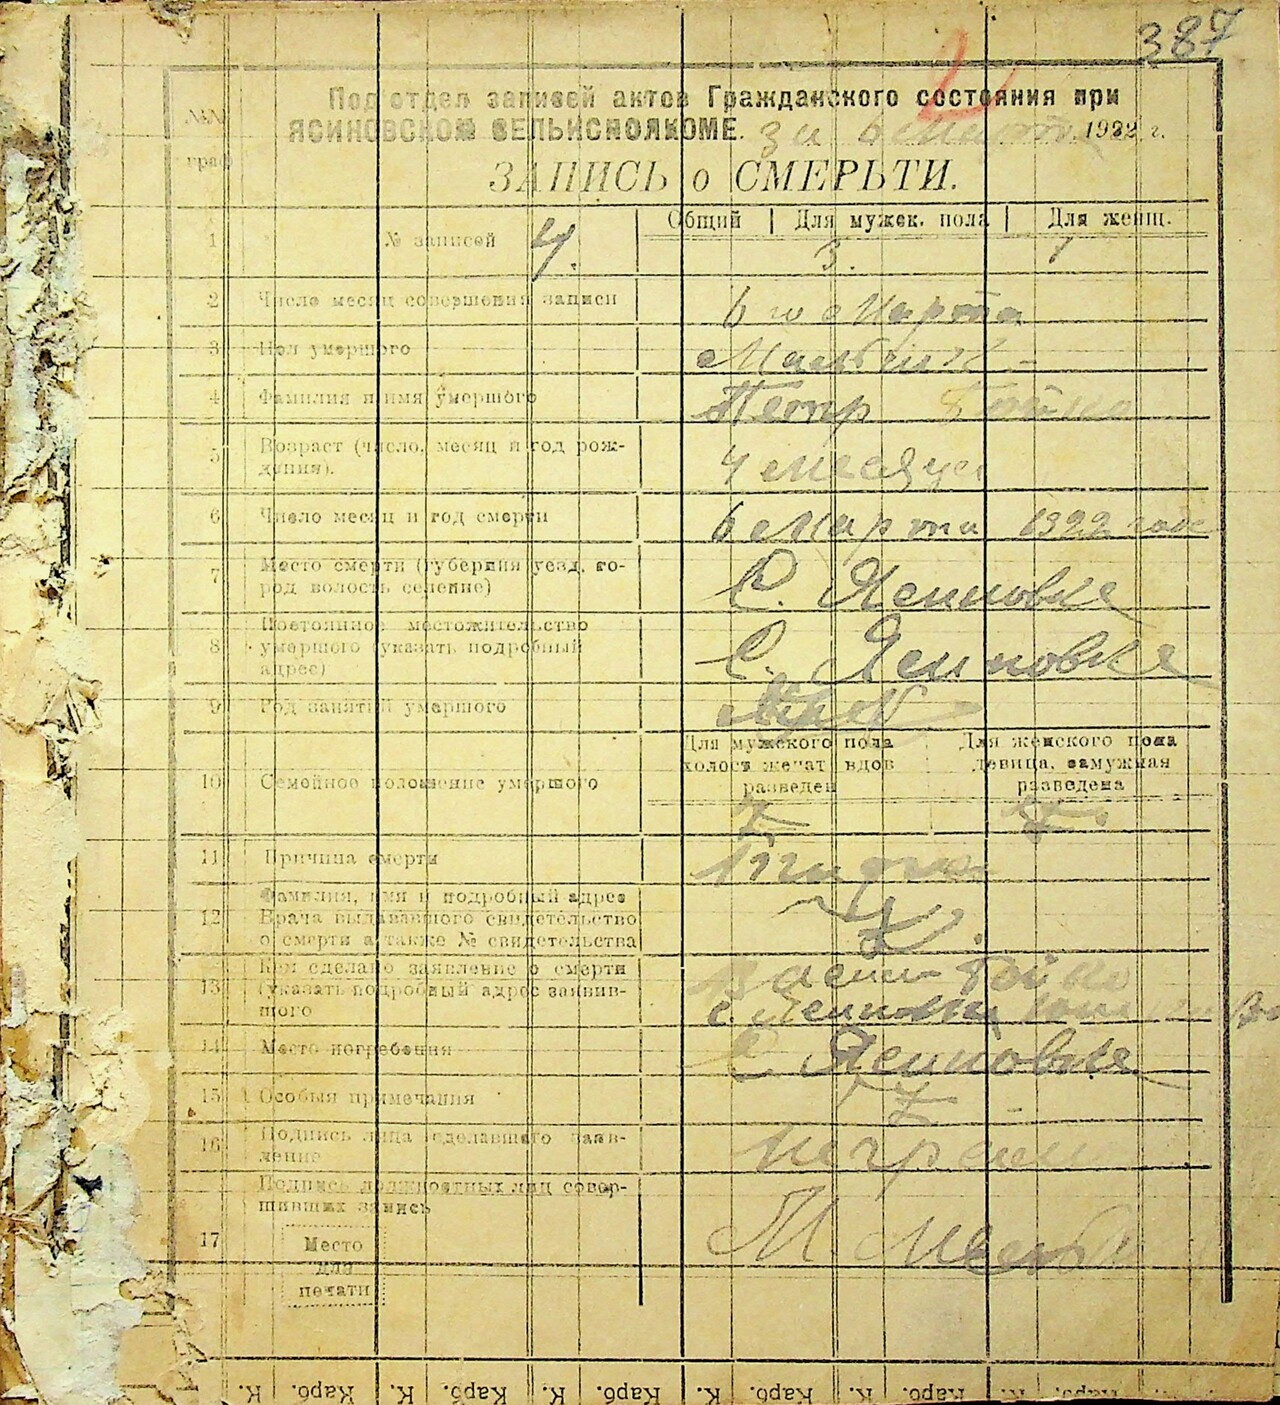 387
Под отдел записей актов Гражданского состояния при
ЯСИНОВСКОМ СЕЛЬИСПОЛКОМЕ. за 6 Марта 1922 г.
№№
граф
ЗАПИСЬ о СМЕРЬТИ.
Общий | Для мужск. пола | Для женщ.
1 № записей 4. 3. 1
2 Число месяц совершения записи 6 го Марта
3 Пол умершого Мальчик -
4 Фамилия и имя умершого Петр Бойко
5 Возраст (число, месяц и год рож-
дения). 4 месяца
6 Число месяц и год смерти 6 Марта 1922 года
7 Место смерти (губерния уезд, го-
род волость селение) С. Ясиновке
8 Постоянное местожительство
умершого (указать подробный
адрес) С. Ясиновке
9 Род занятий умершого
Для мужского пола
холост женат вдов
разведен
Для женского пола
девица, замужная
разведена
10 Семейное положение умершого
11 Причина смерти
12 Фамилия, имя и подробный адрес
Врача выдававшого свидетельство
о смерти а также № свидетельства
13 Кем сделано заявление о смерти
(указать подробный адрес заявив-
шого Бойко
с.
14 Место погребения С Ясиновке
15 Особыя примечания
16 Подпись лица сделавшего заяв-
ление неграмотный
Подпись должностных лиц совер-
шивших запись
17 Место
для
печати
К. Карб. К. Карб. К. Карб. К. Карб. К. Карб. К. Карб. К.